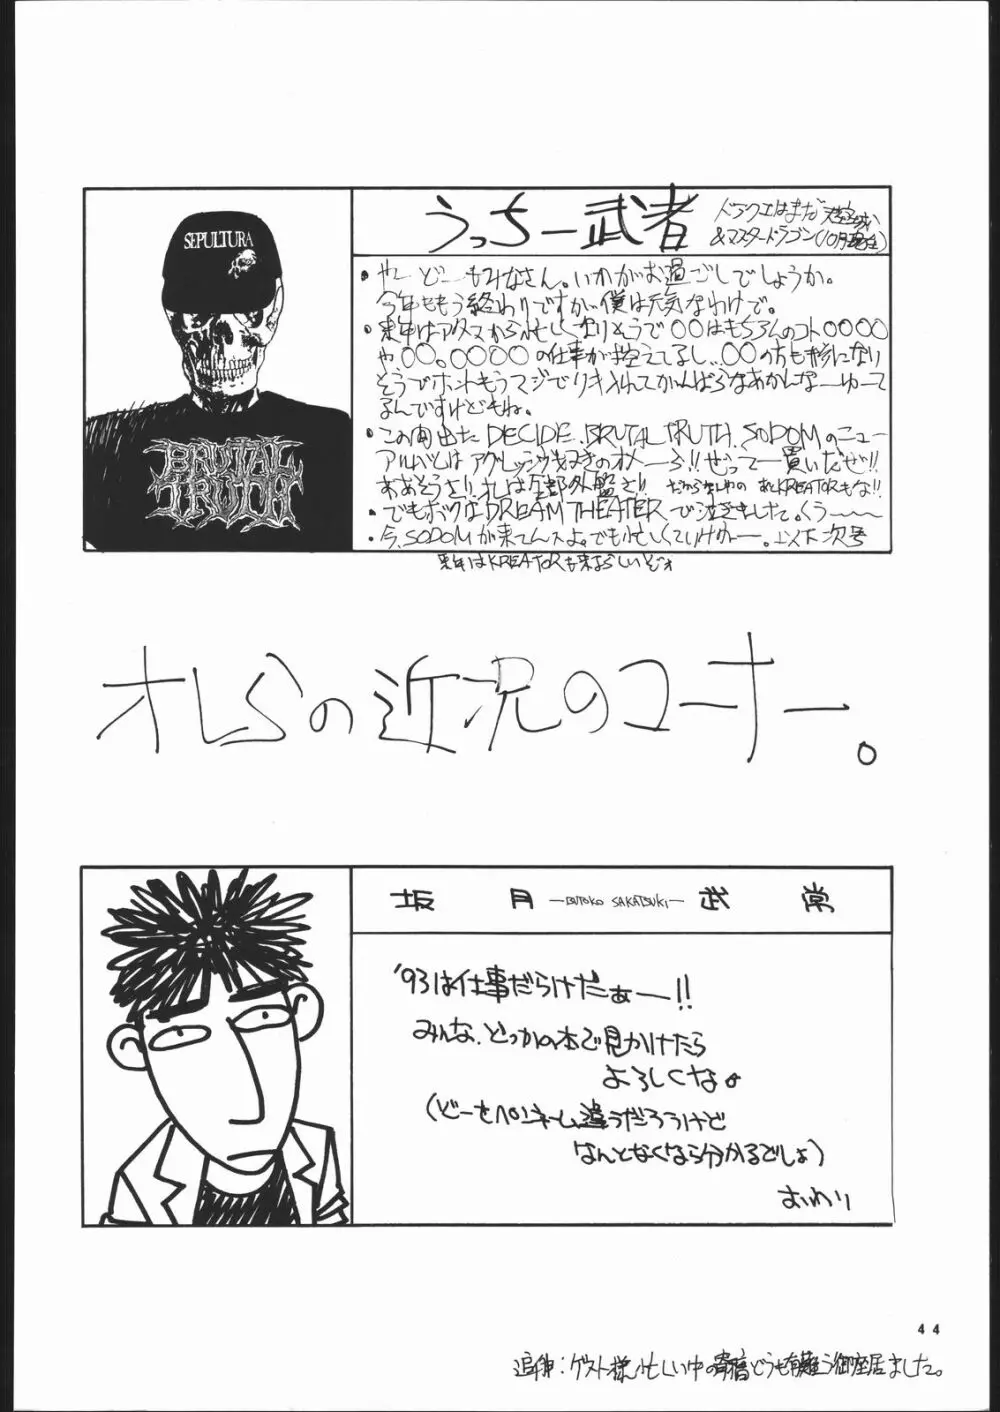 SEPULTURA
BRUTAL
TRUTH
うっちー武者
ドラクエはまだ天空城
&マスタードラゴン(10月現在)
・やーどーもみなさん。いかがお過ごしでしょうか。
今年ももう終わりですが、僕は元気なわけで。
・来年はアタマから忙しくなりそうで〇〇はもちろんのコト〇〇〇〇
や〇〇。〇〇〇〇の仕事が控えてるし、〇〇の方も形になり
そうでホントもうマジでリキ入れてかんばらなあかんなーゆーて
るんですけどもね。
・この間出たDECIDE、BRUTAL TRUTH、SODOMのニュー
アルバムはアグレッシヴ好きのオメーら!!ぜってー買いだぜ!!
ああそうさ!!オレは全部外盤さ!! あとKREATORもな!!
・でもボクはDREAM THEATERで泣きました。くうーーー
・今、SODOMが来てんスよ。でも忙しくていけねー。以下次号
来年はKREATORも来るらしいぞォ
オレらの近況のコーナー。
坂月 —BUTOKO SAKATSUKI— 武常
'93は仕事だらけだぁー!!
みんな、どっかの本で見かけたら
よろしくな。
(どーせペンネーム違うだろうけど
なんとなくなら分かるでしょ)
おわり
44
追伸:ゲスト様、忙しい中の寄稿どうも有難う御座居ました。